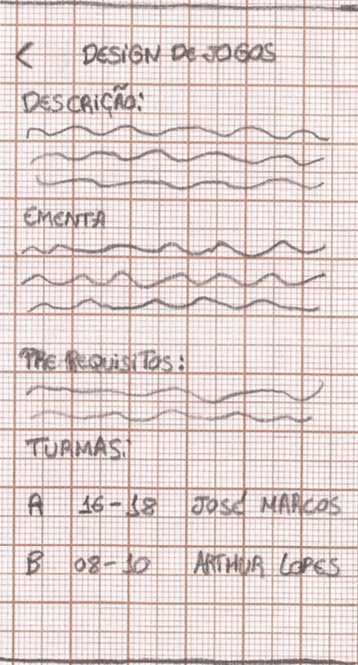 < DESIGN DE JOGOS
DESCRIÇÃO:
EMENTA
PRE REQUISITOS:
TURMAS:
A 16-18 JOSÉ MARCOS
B 08-10 ARTHUR LOPES